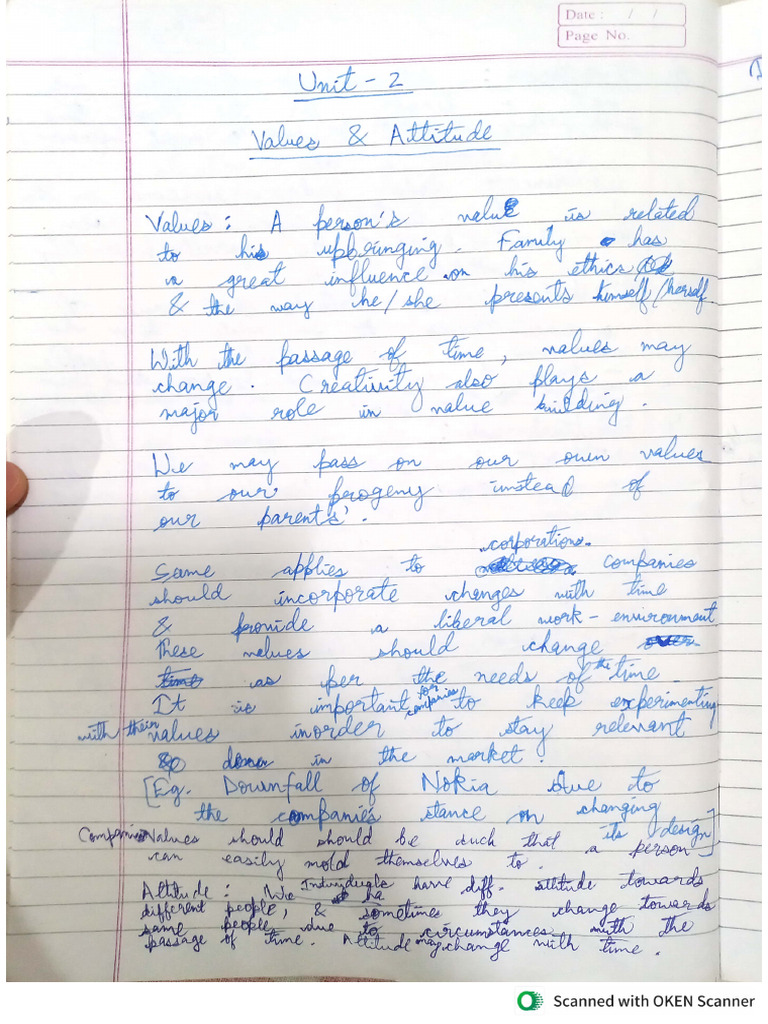 Date : / /
Page No.
Unit - 2
Values & Attitude
Values : A person's value is related
to his upbringing. Family has
a great influence on his ethics
& the way he/she presents himself/herself
With the passage of time, values may
change. Creativity also plays a
major role in value building.
We may pass on our own values
to our progeny instead of
our parents'.
Same applies to corporations. companies
should incorporate changes with time
& provide a liberal work-environment
These values should change
as per the needs of the time.
It is important for companies to keep experimenting
with their values inorder to stay relevant
in the market.
[Eg. Downfall of Nokia due to
the companies stance on changing
its design]
Companies Values should should be such that a person
can easily mold themselves to.
Attitude : Individuals have diff. attitude towards
different people, & sometimes they change towards
same people due to circumstances with the
passage of time. Attitude may change with time.
Scanned with OKEN Scanner